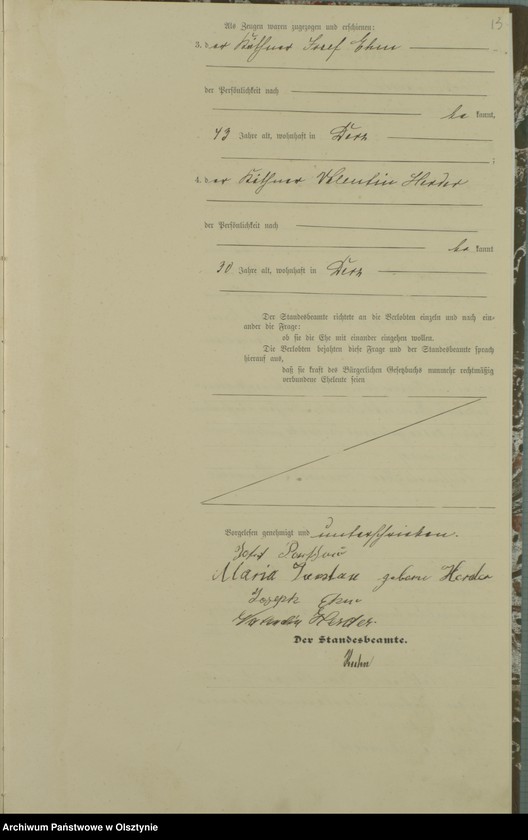 13
Als Zeugen waren zugezogen und erschienen:
3. der Käthner Josef Ehm
der Persönlichkeit nach
be kannt,
43 Jahre alt, wohnhaft in Derz
;
4. der Käthner Valentin Herder
der Persönlichkeit nach
be kannt
30 Jahre alt, wohnhaft in Derz
Der Standesbeamte richtete an die Verlobten einzeln und nach ein-
ander die Frage:
ob sie die Ehe mit einander eingehen wollen.
Die Verlobten bejahten diese Frage und der Standesbeamte sprach
hierauf aus,
daß sie kraft des Bürgerlichen Gesetzbuchs nunmehr rechtmäßig
verbundene Eheleute seien
Vorgelesen genehmigt und unterschrieben.
Josef
Maria geborene Herder
Joseph Ehm
Valentin Herder.
Der Standesbeamte.
Archiwum Państwowe w Olsztynie